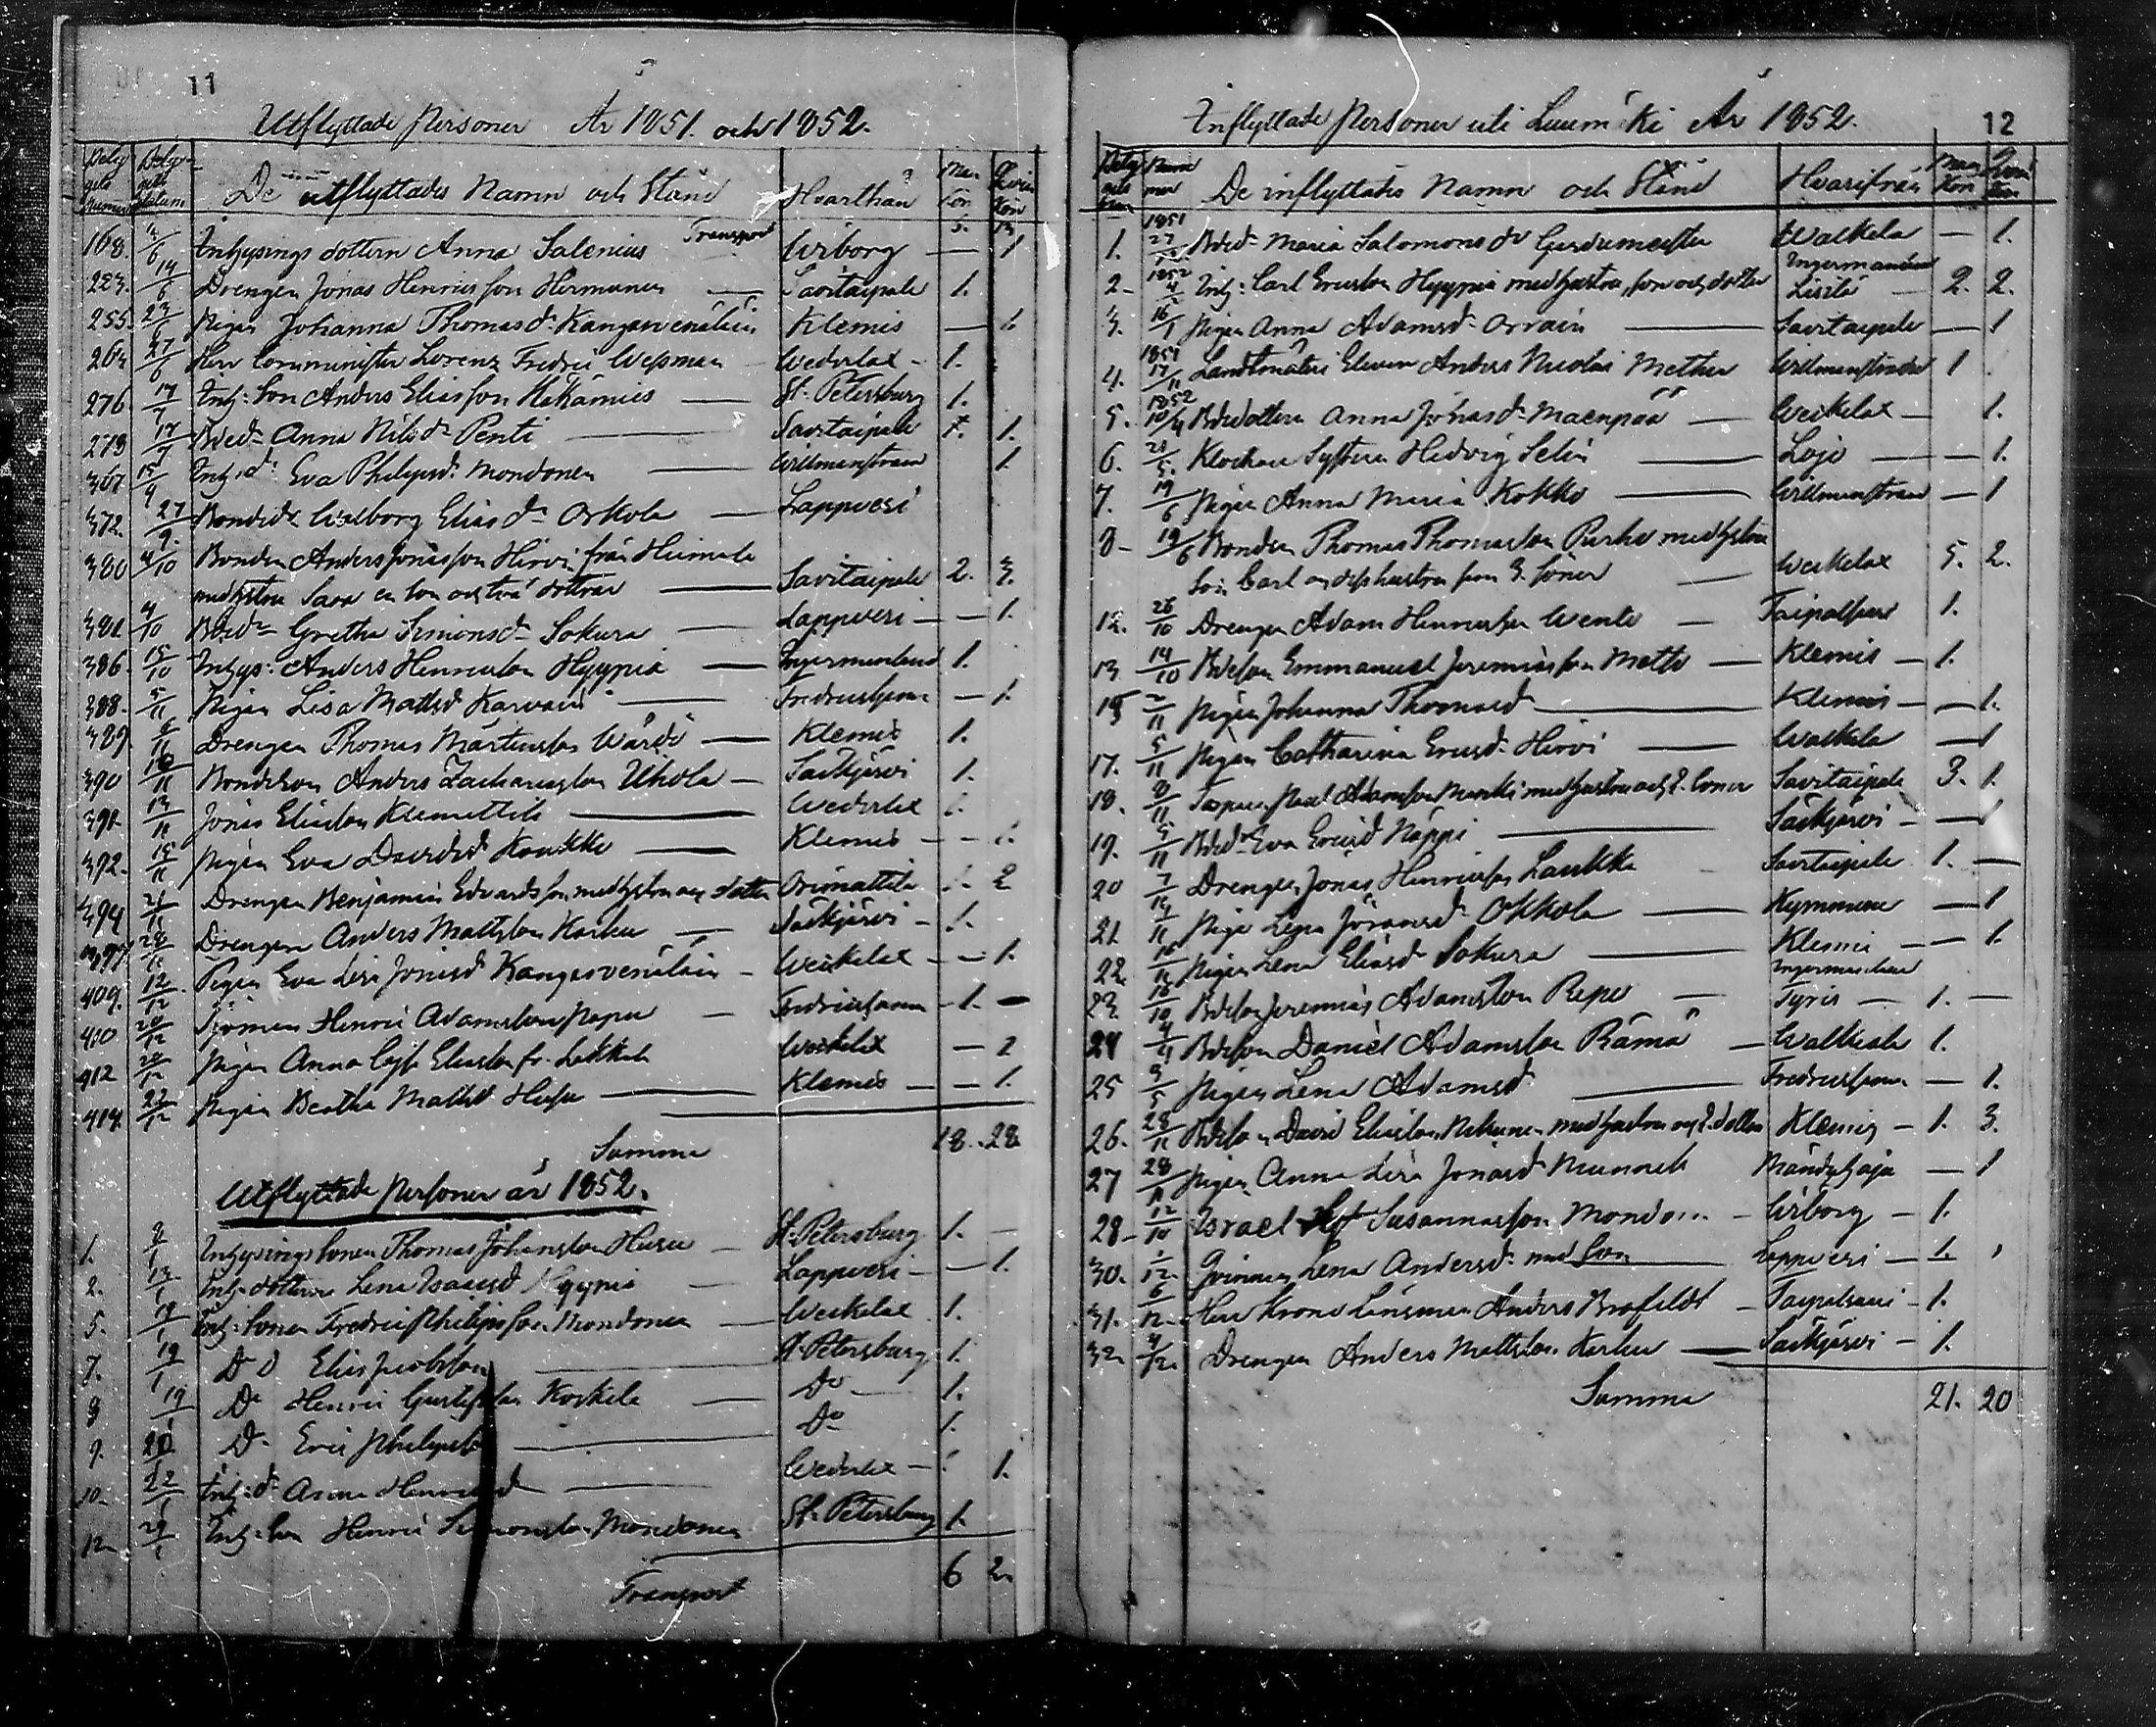 11
Utflyttade Personer År 1851. och 1852.
De utflyttades Namn och Stånd Hvarthän
Transport 5. 13
168. 4/6 Inhysings dottern Anna Salenius Wiborg — 1
223. 14/6 Drengen Jonas Henricsson Hermunen — Savitaipale 1.
255. 23/6 Pigan Johanna Thomasdr Kangasvenäläin Klemis — 1.
263 27/6 Herr Comminister Lorenz Fredric Wessman Wederlax - 1.
276. 17/7 Inh: Son Anders Eliasson Häkämies — St. Petersburg 1.
279 17/7 Bdedr Anna Nilsdr Penti — Savitaipale 1.
367 15/9 Inh: dr Eva Philipsdr Mondonen — Willmanstrand 1.
372. 27/9. Bondedr Walborg Eliasdr Orkola — Lappvesi
380 4/10 Bonden Anders Jonasson Hirvi från Heimala
med hustru Sara en son och två döttrar — Savitaipale 2. 3.
381. 4/10 Bdedr Gretha Simonsdr Sokura — Lappvesi — 1.
386. 15/10 Inhys: Anders Henricsson Hyypiä — Ingermanland 1.
388. 5/11 Pigan Lisa Mattsdr Karvain — Fredricshamn — 1.
389. 6/11 Drengen Thomas Mårtensson Wärdi — Klemis 1.
390 10/11 Bondeson Anders Zachariasson Uhola — Säckjärvi 1.
391. 13/11 Jonas Eliasson Klemettilä — Wederlax 1.
392. 15/11 Pigan Eva Davidsdr Koukko — Klemis — 1.
394 21/11 Drengen Benjamin Edvardsson med hustru och dotter Orimattila 1. 2
397. 28/11 Drengen Anders Mattsson Karhu — Säckjärvi - 1.
409. 12/12 Pigan Eva Lisa Jonasdr Kangasvenäläin — Weckelax — 1.
410 20/12 Henric Adamsson — Fredricshamn - 1. —
412 20/12 Pigan Anna Weckelax —
414. 22/12 Pigan Bertha Mattsdr — Klemis — 1.
Summa 18. 28
Utflyttade personer år 1852.
1. 2/1 Inhysings Sonen Thomas Johansson Husu — St. Petersburg 1. —
2. 13/1 Inh: dottern Lena Isaacsdr Hyypiä — Lappvesi — 1.
5. 19/1 Inh: Sonen Fredric Philipsson Mondonen — Weckelax 1.
7. 19/1 Do Elias Jacobsson — St. Petersburg 1.
8 19/1 Do Henric Gustafsson Korkela — Do — 1.
9. 20/1 Do Eric Philipsson — Do 1.
10. 22/1 Inh: dr Anna Henricsdr — Wederlax — 1.
12. 29/1 Inh: Son Henric Simonsson Mondonen St. Petersburg 1.
Transport 6 2.
12
Inflyttade Personer uti Luumäki År 1852.
De inflyttades Namn och Stånd Hvarifrån
1. 1851 27/ Bdedr Maria Salomonsdr Walkeala — 1.
2. 1852 4/2 Inh: Carl Ericsson Hyypiä med hustru, son och dotter Ingermanland Lisilä — 2. 2.
3. 16/1 Pigan Anna Adamsdr Orvain — Savitaipale — 1
4. 1851 17/11 Landtmäteri Eleven Anders Nicolai Mether Willmanstrand 1
5. 1852 10/4 Bdedottern Anna Jonasdr Maenpää — Weckelax — 1.
6. 21/5. Klockare Systern Hedvig Selin — Lojo — 1.
7. 19/6 Pigan Anna Maria Kokko — Willmanstrand — 1
8 - 19/6 Bonden Thomas Thomasson Purho med hustru
Son Carl och dess hustru samt 3. söner — Weckelax 5. 2.
12. 26/10 Drengen Adam Henricsson Wento — Taipalsaari 1.
13 14/10 Bdeson Emmanuel Jeremiasson Metto — Klemis — 1.
15 2/11 Pigan Johanna Thomasdr — Klemis — 1.
17. 5/11 Pigan Catharina Ericsdr Hirvi — Walkeala — 1
18. 8/11 Adamsson med hustru och 2. Söner Savitaipale 3. 1.
19. 5/11 Bdedr Eva Ericsdr Näppi — Säckjärvi — 1
20 7/11 Drengen Jonas Henricsson Laukka Savitaipale 1. —
21 /11 Pigan Lena Göransdr Okkola — Kymmene — 1
22. 16/11 Pigan Lena Eliasdr Sokura — Klemis — 1.
23. 16/10 Bdeson Jeremias Adamsson Repo — Ingermanland Tyris — 1. —
24 4/4 Bdeson Daniel Adamsson Rämä — Walkeala 1.
25 3/5 Pigan Lena Adamsdr — Fredricshamn — 1.
26. 28/11 Bdeson David Eliasson med hustru och 2. döttrar Klemis — 1. 3.
27 28/11 Pigan Anna Lisa Jonasdr Mäntyharju — 1
28 - 12/10 Israel Susannasson Mondonen — Wiborg — 1.
30. 1/12. Qvinnan Lena Andersdr med Son Lappvesi — 1.
31. 6/12. Herr Krono Länsman Anders Brofeldt — Taipalsaari — 1.
32. 4/12. Drengen Anders Mattsson Karhu — Säckjärvi — 1.
Summa 21. 20